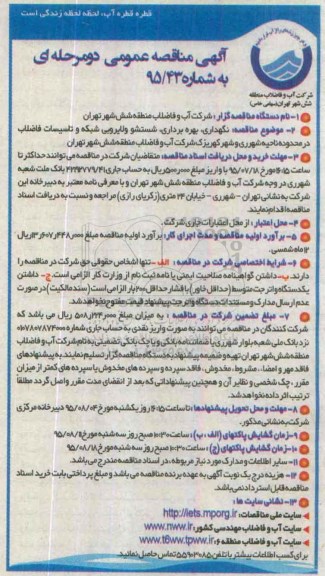 قطره قطره آب، لحظه لحظه زندگی است
آگهی مناقصه عمومی دومرحله ای
به شماره ۹۵/۴۳
شرکت آب و فاضلاب منطقه
شش شهر تهران (سهامی خاص)
۱- نام دستگاه مناقصه گزار: شرکت آب و فاضلاب منطقه شش شهر تهران
۲- موضوع مناقصه: نگهداری، بهره برداری، شستشو ولایروبی شبکه و تاسیسات فاضلاب
در محدوده ناحیه شهرری و شهر کهریزک شرکت آب و فاضلاب منطقه شش شهر تهران
۳- مهلت خرید و محل دریافت اسناد مناقصه: متقاضیان شرکت در مناقصه می توانند حداکثر تا
ساعت ۱۶:۱۵ مورخ ۹۵/۰۷/۱۸ با واریز مبلغ ۵۰۰،۰۰۰ ریال به حساب جاری بانک ملت شعبه
شهرری در وجه شرکت آب و فاضلاب منطقه شش شهر تهران و با معرفی نامه معتبر به دبیرخانه این
شرکت به نشانی تهران - شهرری - خیابان ۲۴ متری (زکریای رازی) مراجعه و نسبت به دریافت اسناد
مناقصه اقدام نمایند.
۴- محل اعتبار: از محل اعتبارات جاری شرکت.
۵- برآورد اولیه مناقصه و مدت اجرای کار: برآورد اولیه مناقصه مبلغ ریال
۱۲ ماه شمسی.
۶- شرایط اختصاصی شرکت در مناقصه: الف- تنها اشخاص حقوقی حق شرکت در مناقصه را
دارند. ب- داشتن گواهینامه صلاحیت ایمنی یا نامه ثبت نام از وزارت کار الزامی است. ج- داشتن
یکدستگاه واترجت متوسط (حداقل خاور) با فشار حداقل بار الزامی است (سند مالکیت) در صورت
عدم ارسال مدارک و مستندات دستگاه واترجت پیشنهاد قیمت مفتوح نخواهد شد.
۷- مبلغ تضمین شرکت در مناقصه: به میزان مبلغ ریال می باشد که
شرکت کنندگان در مناقصه می توانند به صورت واریز نقدی به حساب جاری شماره
نزد بانک ملی شعبه بلوار شهرری یا ضمانتنامه بانکی و یا چک بانکی تضمینی به نام شرکت آب و فاضلاب
منطقه شش شهر تهران تهیه و ضمیمه پیشنهاد به دستگاه مناقصه گزار تسلیم نمایند. به پیشنهادهای
فاقد مهر و امضاء، مشروط، مخدوش، فاقد سپرده و سپرده های مخدوش یا سپرده های کمتر از میزان
مقرر، چک شخصی و نظایر آن و همچنین پیشنهاداتی که بعد از انقضای مدت مقرر واصل گردد مطلقا
ترتیب اثر داده نخواهد شد.
۸- مهلت و محل تحویل پیشنهادها: تا ساعت ۱۶:۱۵ روز یکشنبه مورخ ۹۵/۰۸/۰۴ دبیرخانه مرکزی
شرکت به نشانی مذکور.
۹- زمان گشایش پاکتهای (الف، ب): ساعت ۱۰:۳۰ صبح روز سه شنبه مورخ
۱۰- زمان گشایش پاکتهای (ج): ساعت ۱۰:۳۰ صبح روز سه شنبه مورخ ۹۵/۰۸/۱۸
۱۱- سایر اطلاعات و مدارک مورد نیاز مربوطه، در اسناد مناقصه مندرج می باشد.
۱۲- هزینه درج یک نوبت آگهی به عهده برنده مناقصه می باشد و مبلغ پرداختی بابت خرید اسناد
مناقصه قابل استرداد نمی باشد.
۱۳- نشانی سایت ها:
سایت ملی مناقصات: http://iets.mporg.ir
سایت آب و فاضلاب مهندسی کشور: www.nww.ir
سایت آب و فاضلاب منطقه ۶: www.t6ww.tpww.ir
برای کسب اطلاعات بیشتر با تلفن ۵۵۹۰۳۰۸۵ تماس حاصل نمائید.